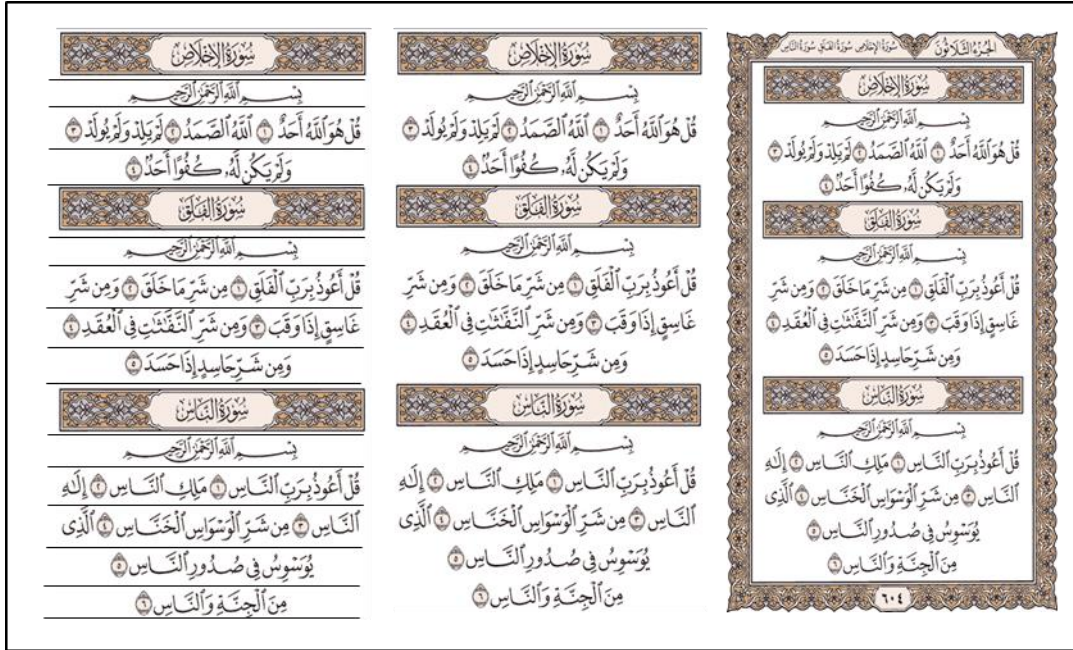 الجُزْءُ الثَّلَاثُونَ سُورَةُ الإِخْلَاصِ سُورَةُ الفَلَقِ سُورَةُ النَّاسِ
سُورَةُ الإِخْلَاصِ
بِسْمِ ٱللَّهِ ٱلرَّحْمَٰنِ ٱلرَّحِيمِ
قُلْ هُوَ ٱللَّهُ أَحَدٌ ١ ٱللَّهُ ٱلصَّمَدُ ٢ لَمْ يَلِدْ وَلَمْ يُولَدْ ٣
وَلَمْ يَكُن لَّهُۥ كُفُوًا أَحَدٌۢ ٤
سُورَةُ الفَلَقِ
بِسْمِ ٱللَّهِ ٱلرَّحْمَٰنِ ٱلرَّحِيمِ
قُلْ أَعُوذُ بِرَبِّ ٱلْفَلَقِ ١ مِن شَرِّ مَا خَلَقَ ٢ وَمِن شَرِّ
غَاسِقٍ إِذَا وَقَبَ ٣ وَمِن شَرِّ ٱلنَّفَّٰثَٰتِ فِي ٱلْعُقَدِ ٤
وَمِن شَرِّ حَاسِدٍ إِذَا حَسَدَ ٥
سُورَةُ النَّاسِ
بِسْمِ ٱللَّهِ ٱلرَّحْمَٰنِ ٱلرَّحِيمِ
قُلْ أَعُوذُ بِرَبِّ ٱلنَّاسِ ١ مَلِكِ ٱلنَّاسِ ٢ إِلَٰهِ
ٱلنَّاسِ ٣ مِن شَرِّ ٱلْوَسْوَاسِ ٱلْخَنَّاسِ ٤ ٱلَّذِى
يُوَسْوِسُ فِى صُدُورِ ٱلنَّاسِ ٥
مِنَ ٱلْجِنَّةِ وَٱلنَّاسِ ٦
٦٠٤
سُورَةُ الإِخْلَاصِ
بِسْمِ ٱللَّهِ ٱلرَّحْمَٰنِ ٱلرَّحِيمِ
قُلْ هُوَ ٱللَّهُ أَحَدٌ ١ ٱللَّهُ ٱلصَّمَدُ ٢ لَمْ يَلِدْ وَلَمْ يُولَدْ ٣
وَلَمْ يَكُن لَّهُۥ كُفُوًا أَحَدٌۢ ٤
سُورَةُ الفَلَقِ
بِسْمِ ٱللَّهِ ٱلرَّحْمَٰنِ ٱلرَّحِيمِ
قُلْ أَعُوذُ بِرَبِّ ٱلْفَلَقِ ١ مِن شَرِّ مَا خَلَقَ ٢ وَمِن شَرِّ
غَاسِقٍ إِذَا وَقَبَ ٣ وَمِن شَرِّ ٱلنَّفَّٰثَٰتِ فِي ٱلْعُقَدِ ٤
وَمِن شَرِّ حَاسِدٍ إِذَا حَسَدَ ٥
سُورَةُ النَّاسِ
بِسْمِ ٱللَّهِ ٱلرَّحْمَٰنِ ٱلرَّحِيمِ
قُلْ أَعُوذُ بِرَبِّ ٱلنَّاسِ ١ مَلِكِ ٱلنَّاسِ ٢ إِلَٰهِ
ٱلنَّاسِ ٣ مِن شَرِّ ٱلْوَسْوَاسِ ٱلْخَنَّاسِ ٤ ٱلَّذِى
يُوَسْوِسُ فِى صُدُورِ ٱلنَّاسِ ٥
مِنَ ٱلْجِنَّةِ وَٱلنَّاسِ ٦
سُورَةُ الإِخْلَاصِ
بِسْمِ ٱللَّهِ ٱلرَّحْمَٰنِ ٱلرَّحِيمِ
قُلْ هُوَ ٱللَّهُ أَحَدٌ ١ ٱللَّهُ ٱلصَّمَدُ ٢ لَمْ يَلِدْ وَلَمْ يُولَدْ ٣
وَلَمْ يَكُن لَّهُۥ كُفُوًا أَحَدٌۢ ٤
سُورَةُ الفَلَقِ
بِسْمِ ٱللَّهِ ٱلرَّحْمَٰنِ ٱلرَّحِيمِ
قُلْ أَعُوذُ بِرَبِّ ٱلْفَلَقِ ١ مِن شَرِّ مَا خَلَقَ ٢ وَمِن شَرِّ
غَاسِقٍ إِذَا وَقَبَ ٣ وَمِن شَرِّ ٱلنَّفَّٰثَٰتِ فِي ٱلْعُقَدِ ٤
وَمِن شَرِّ حَاسِدٍ إِذَا حَسَدَ ٥
سُورَةُ النَّاسِ
بِسْمِ ٱللَّهِ ٱلرَّحْمَٰنِ ٱلرَّحِيمِ
قُلْ أَعُوذُ بِرَبِّ ٱلنَّاسِ ١ مَلِكِ ٱلنَّاسِ ٢ إِلَٰهِ
ٱلنَّاسِ ٣ مِن شَرِّ ٱلْوَسْوَاسِ ٱلْخَنَّاسِ ٤ ٱلَّذِى
يُوَسْوِسُ فِى صُدُورِ ٱلنَّاسِ ٥
مِنَ ٱلْجِنَّةِ وَٱلنَّاسِ ٦